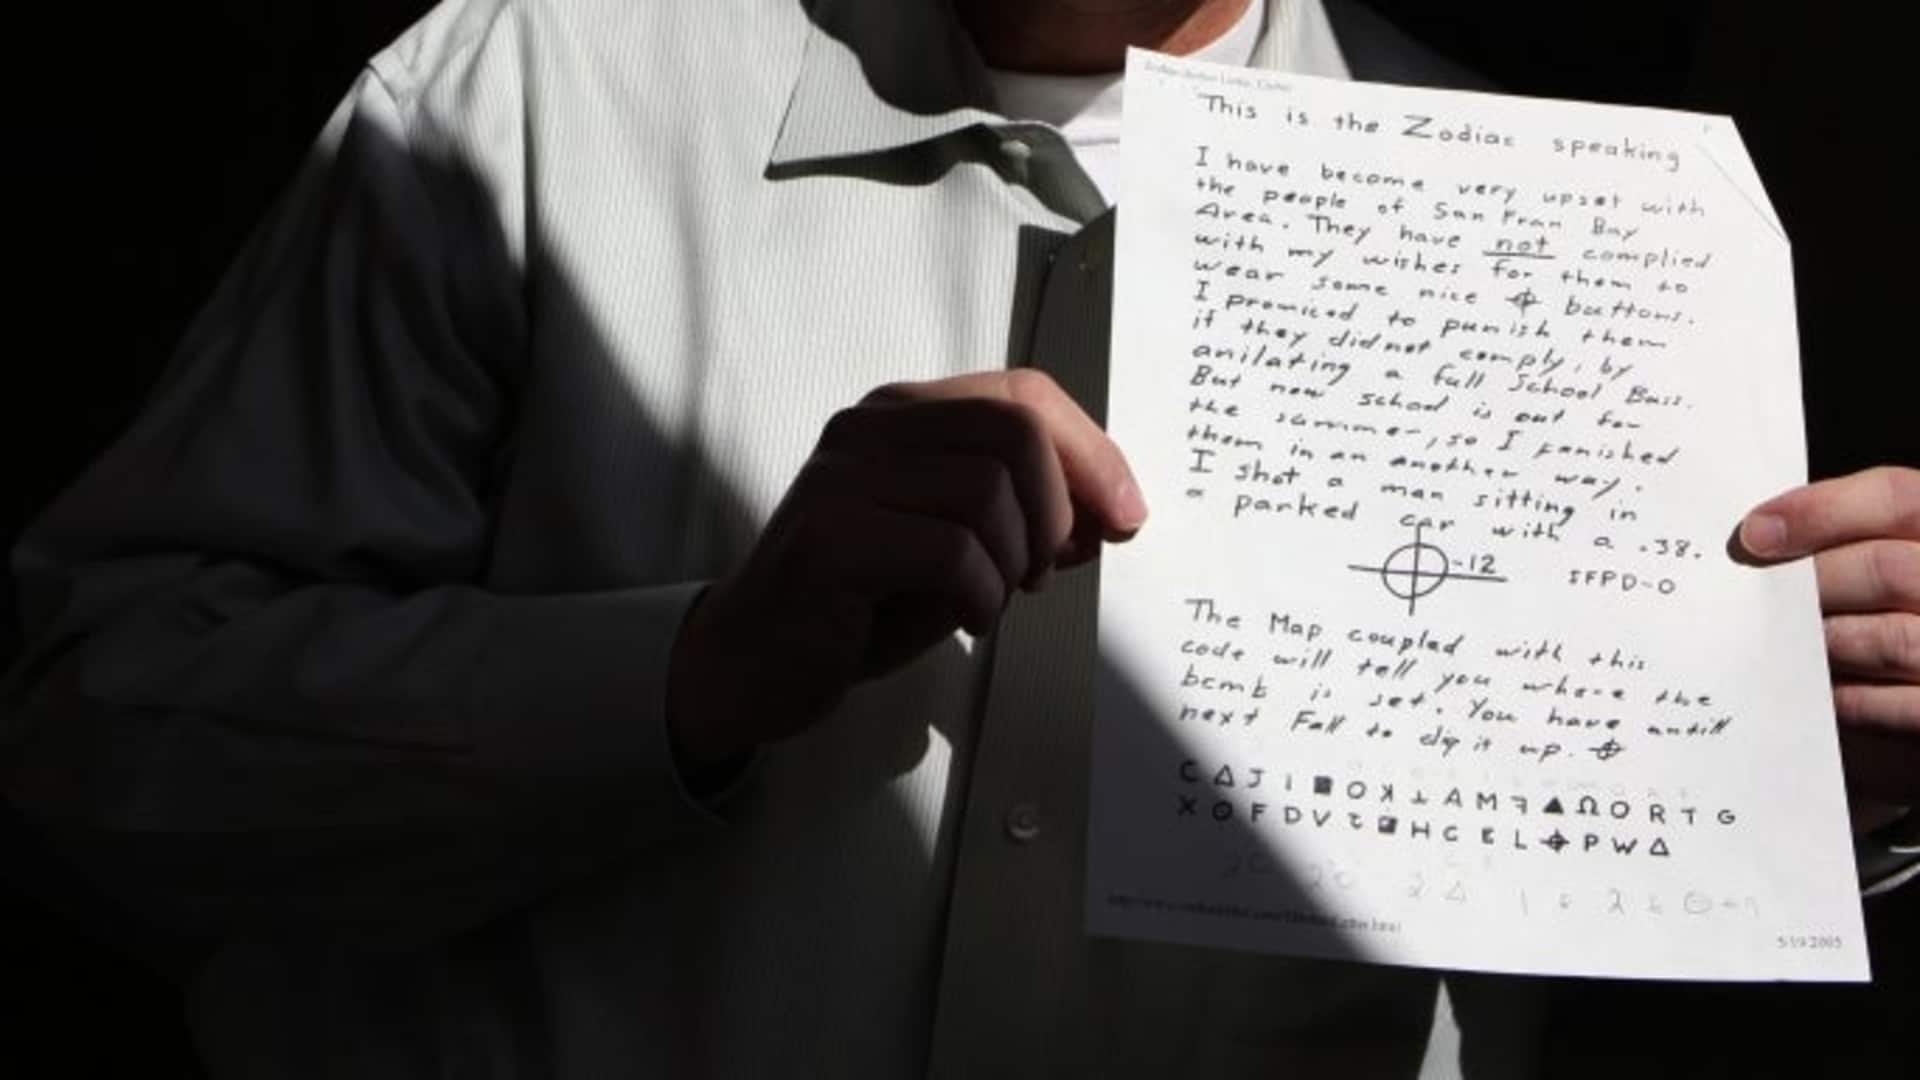 This is the Zodiac speaking
I have become very upset with
the people of San Fran Bay
Area. They have not complied
with my wishes for them to
wear some nice ⌖ buttons.
I promiced to punish them
if they did not comply, by
anilating a full School Buss.
But now school is out for
the summer, so I punished
them in an another way.
I shot a man sitting in
a parked car with a .38.
⌖-12 SFPD-0
The Map coupled with this
code will tell you where the
bomb is set. You have untill
next Fall to dig it up. ⌖
C Δ J I ■ O ꓘ ⊥ A M ꟻ ▲ Ω O R T G
X ⊙ F D V Ʇ ◪ H C E L ⌖ P W Δ
5/19/2005